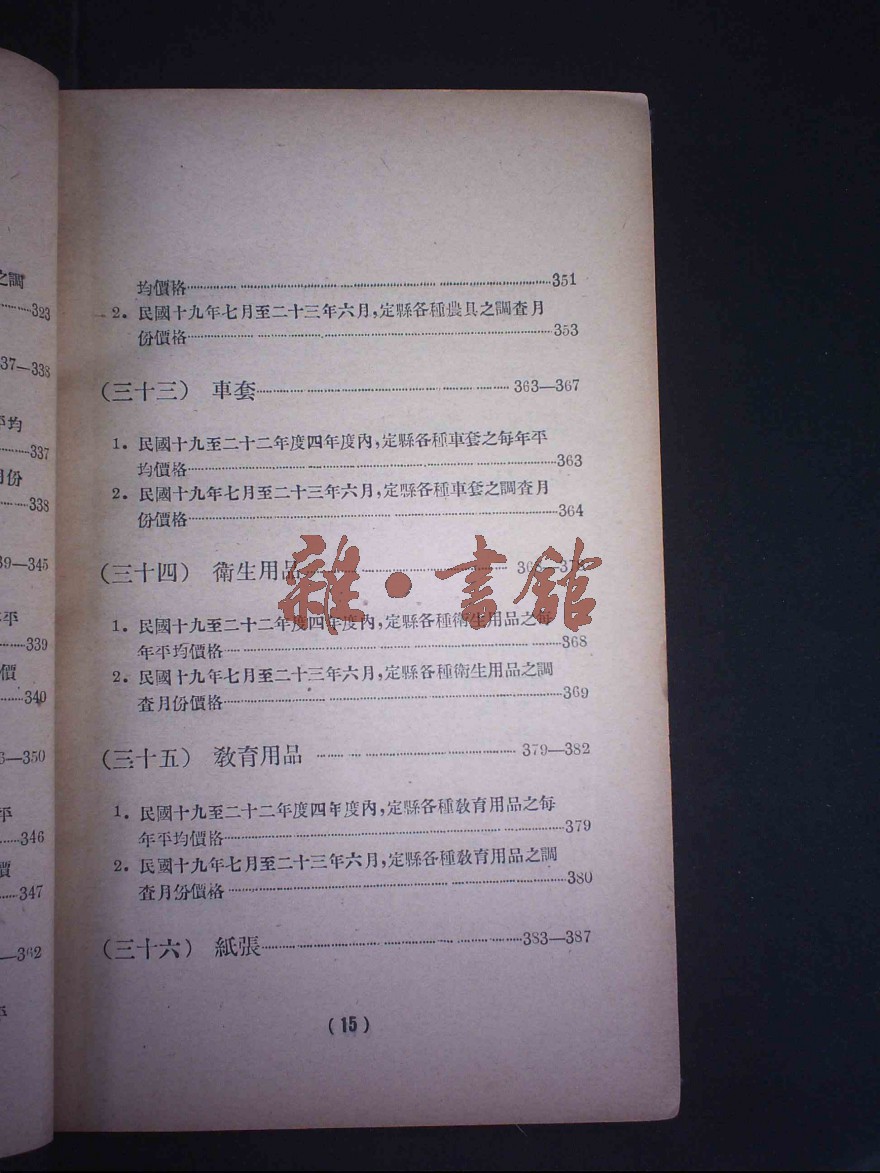 之調
323
37—338
平均
337
月份
338
39—345
平
339
價
340
6—350
平
346
價
347
—362
平
均價格 351
2. 民國十九年七月至二十三年六月,定縣各種農具之調查月
份價格 353
(三十三) 車套 363—367
1. 民國十九至二十二年度四年度內,定縣各種車套之每年平
均價格 363
2. 民國十九年七月至二十三年六月,定縣各種車套之調查月
份價格 364
(三十四) 衛生用品 368—378
1. 民國十九至二十二年度四年度內,定縣各種衛生用品之每
年平均價格 368
2. 民國十九年七月至二十三年六月,定縣各種衛生用品之調
查月份價格 369
(三十五) 敎育用品 379—382
1. 民國十九至二十二年度四年度內,定縣各種敎育用品之每
年平均價格 379
2. 民國十九年七月至二十三年六月,定縣各種敎育用品之調
查月份價格 380
(三十六) 紙張 383—387
(15)
雜·書館